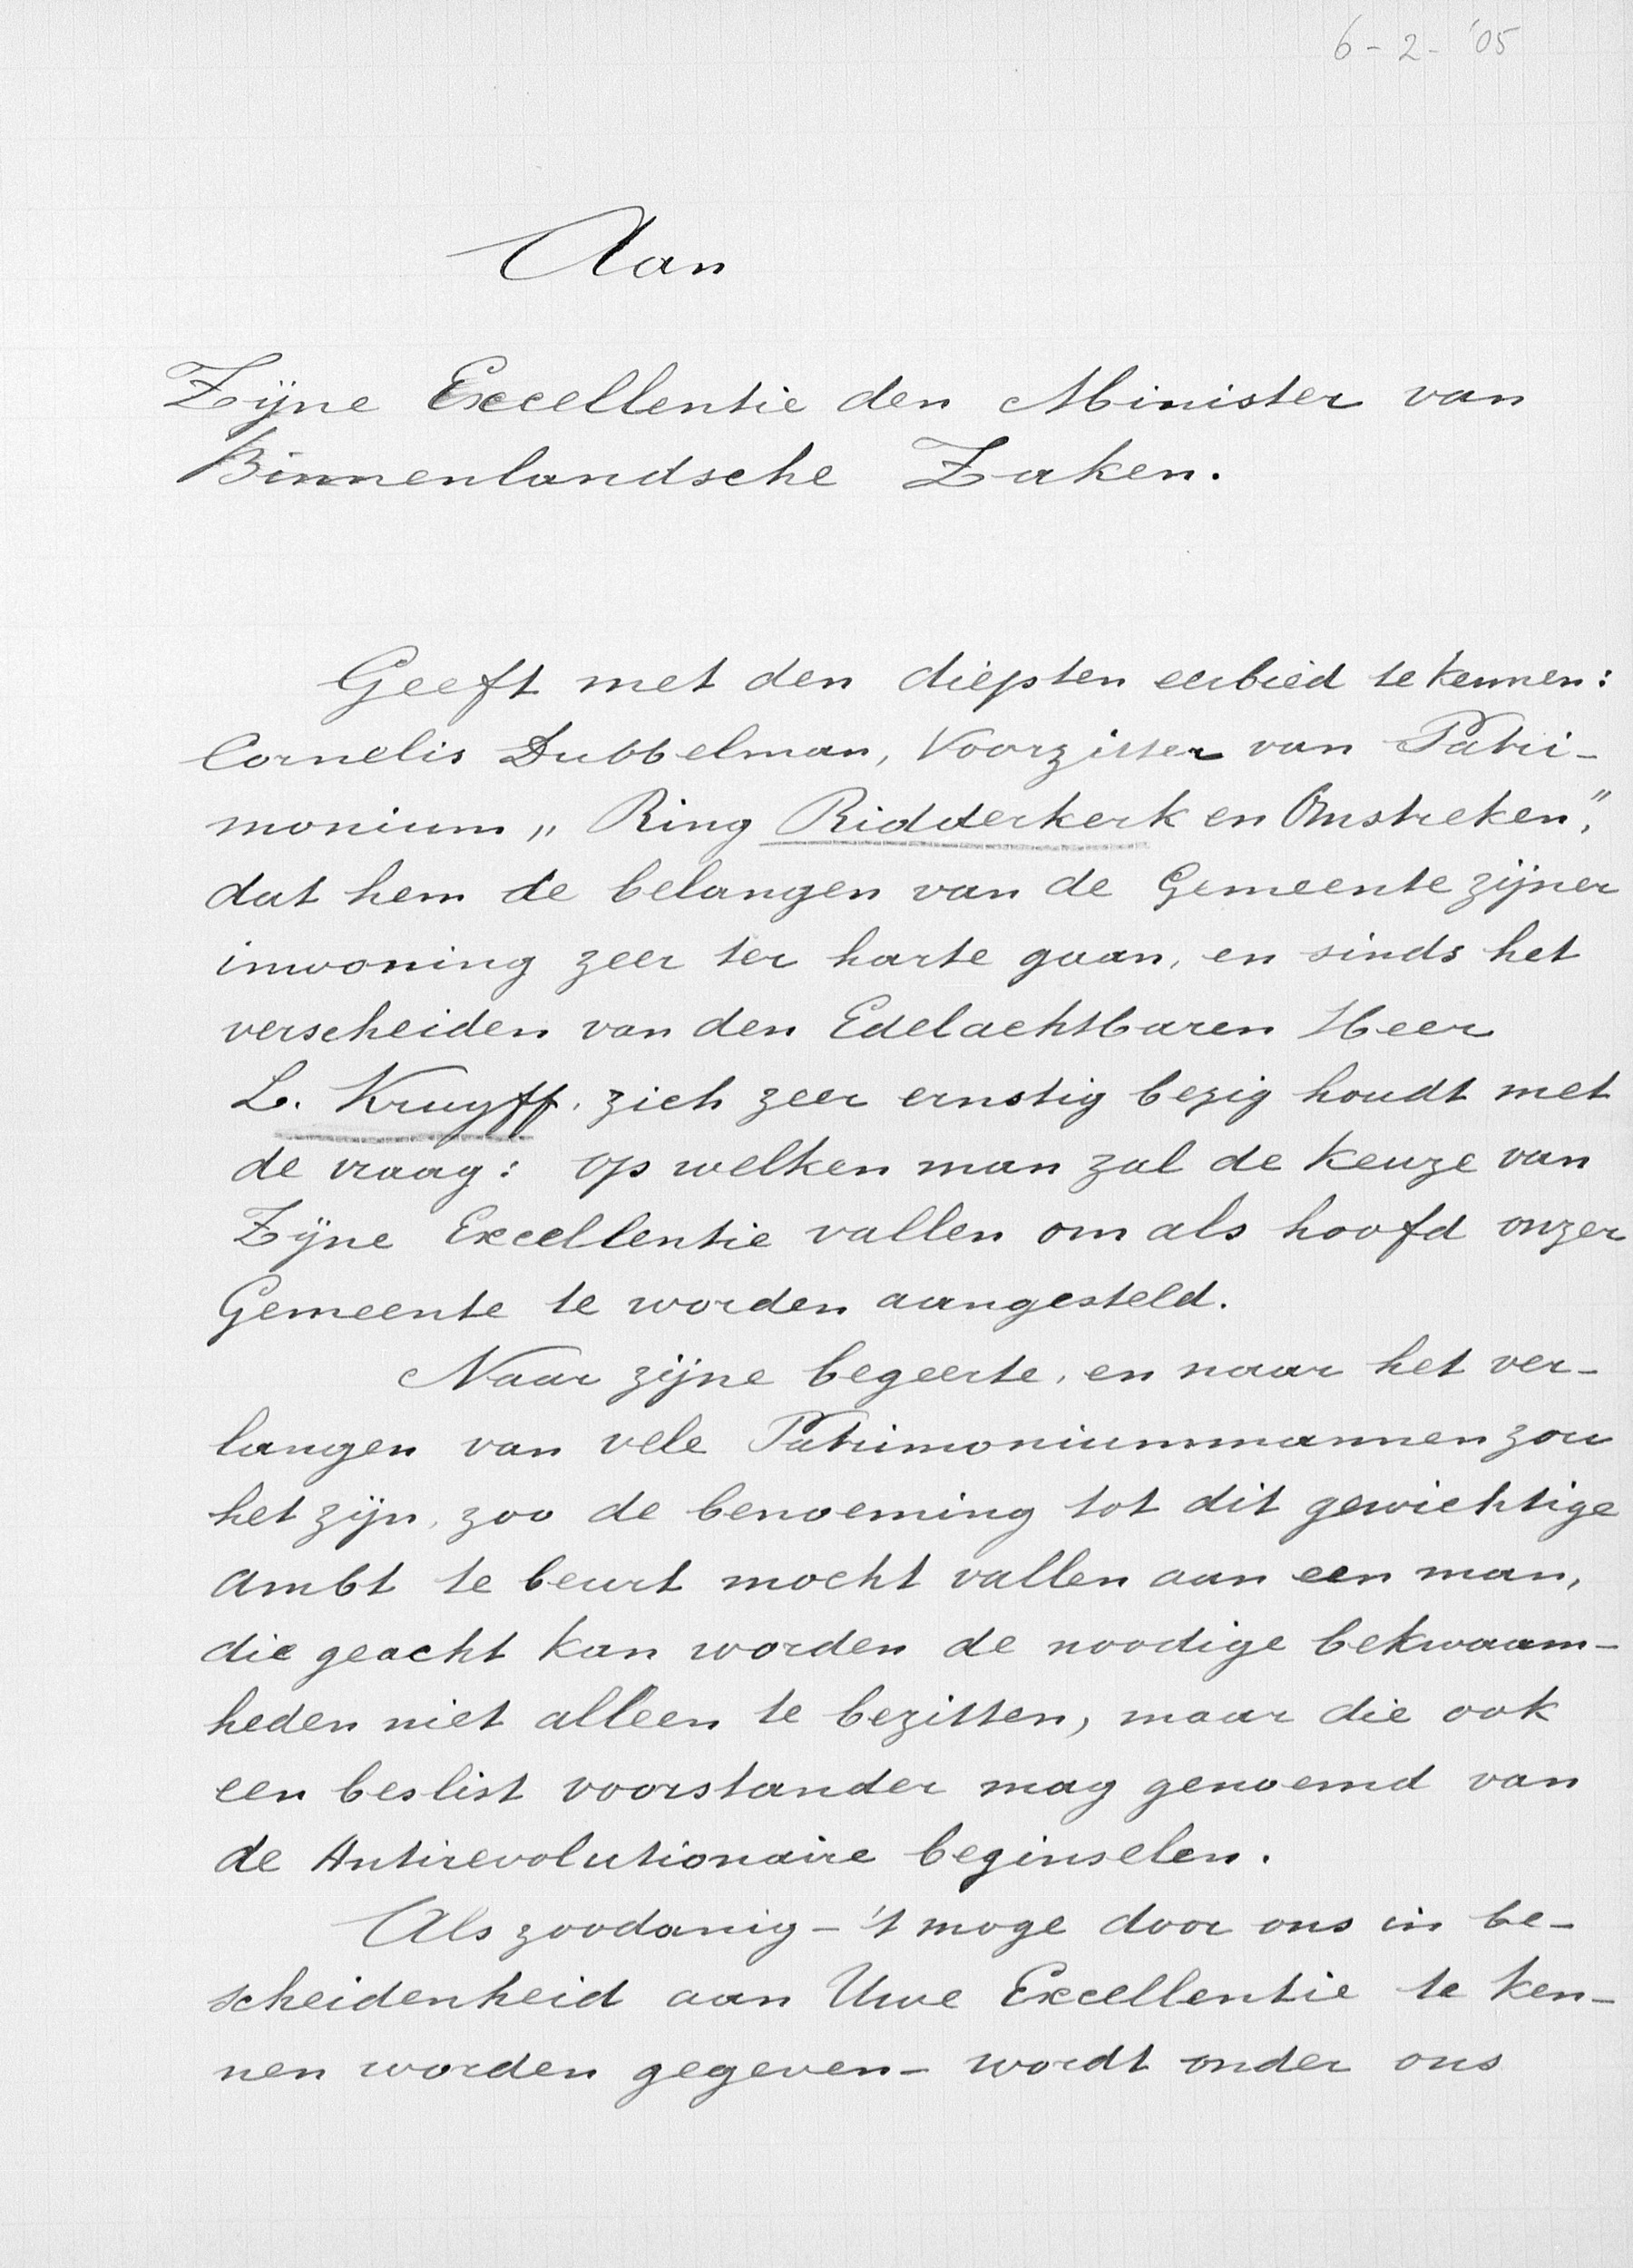 6-2-'05
Aan
Zijne Excellentie den Minister van
Binnenlandsche Zaken.
Geeft met den diepsten eerbied te kennen:
Cornelis Dubbelman, Voorzitter van Patri-
monium „Ring Ridderkerk en Omstreken",
dat hem de belangen van de Gemeente zijner
inwoning zeer ter harte gaan, en sinds het
verscheiden van den Edelachtbaren Heer
L. Kruyff, zich zeer ernstig bezig houdt met
de vraag: op welken man zal de keuze van
Zijne Excellentie vallen om als hoofd onzer
Gemeente te worden aangesteld.
Naar zijne begeerte, en naar het ver-
langen van vele Patrimoniummannen zou
het zijn, zoo de benoeming tot dit gewichtige
ambt te beurt mocht vallen aan een man,
die geacht kan worden de noodige bekwaam-
heden niet alleen te bezitten, maar die ook
een beslist voorstander mag genoemd van
de Antirevolutionaire beginselen.
Als zoodanig - 't moge door ons in be-
scheidenheid aan Uwe Excellentie te ken-
nen worden gegeven - wordt onder ons